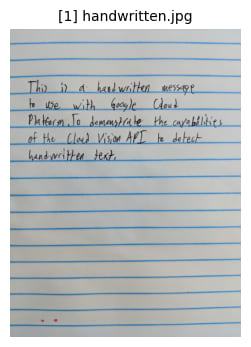 [1] handwritten.jpg
This is a handwritten message
to use with Google Cloud
Platform. To demonstrate the capabilities
of the Cloud Vision API to detect
handwritten text.